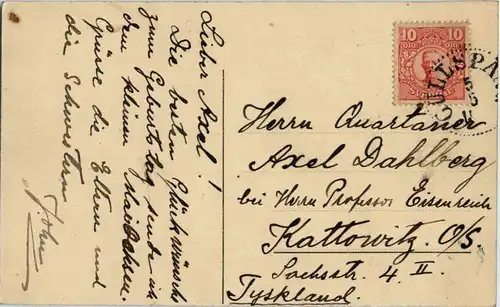 Lieber Axel!
Die besten Glückwünsche
zum Geburtstag sende ich
dem kleinen
Grüsse die Eltern und
die Schwestern
John
10 10
Herrn Quartaner
Axel Dahlberg
bei Herrn Professor Eisenreich
Kattowitz. O/S.
Sachsstr. 4. II.
Tyskland.